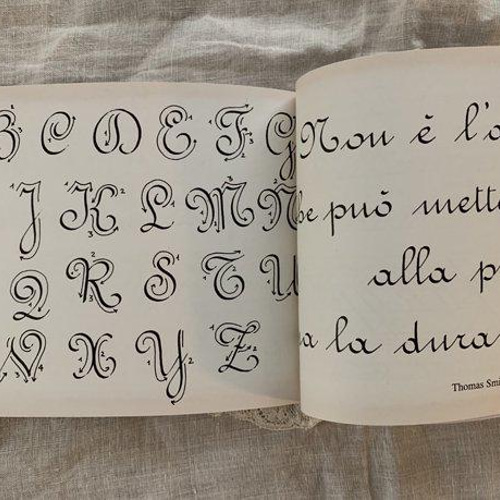 B C D E F G
J K L M N
Q R S T U
W X Y Z
Non è l'o
he può mett
alla p
a la dura
Thomas Smi